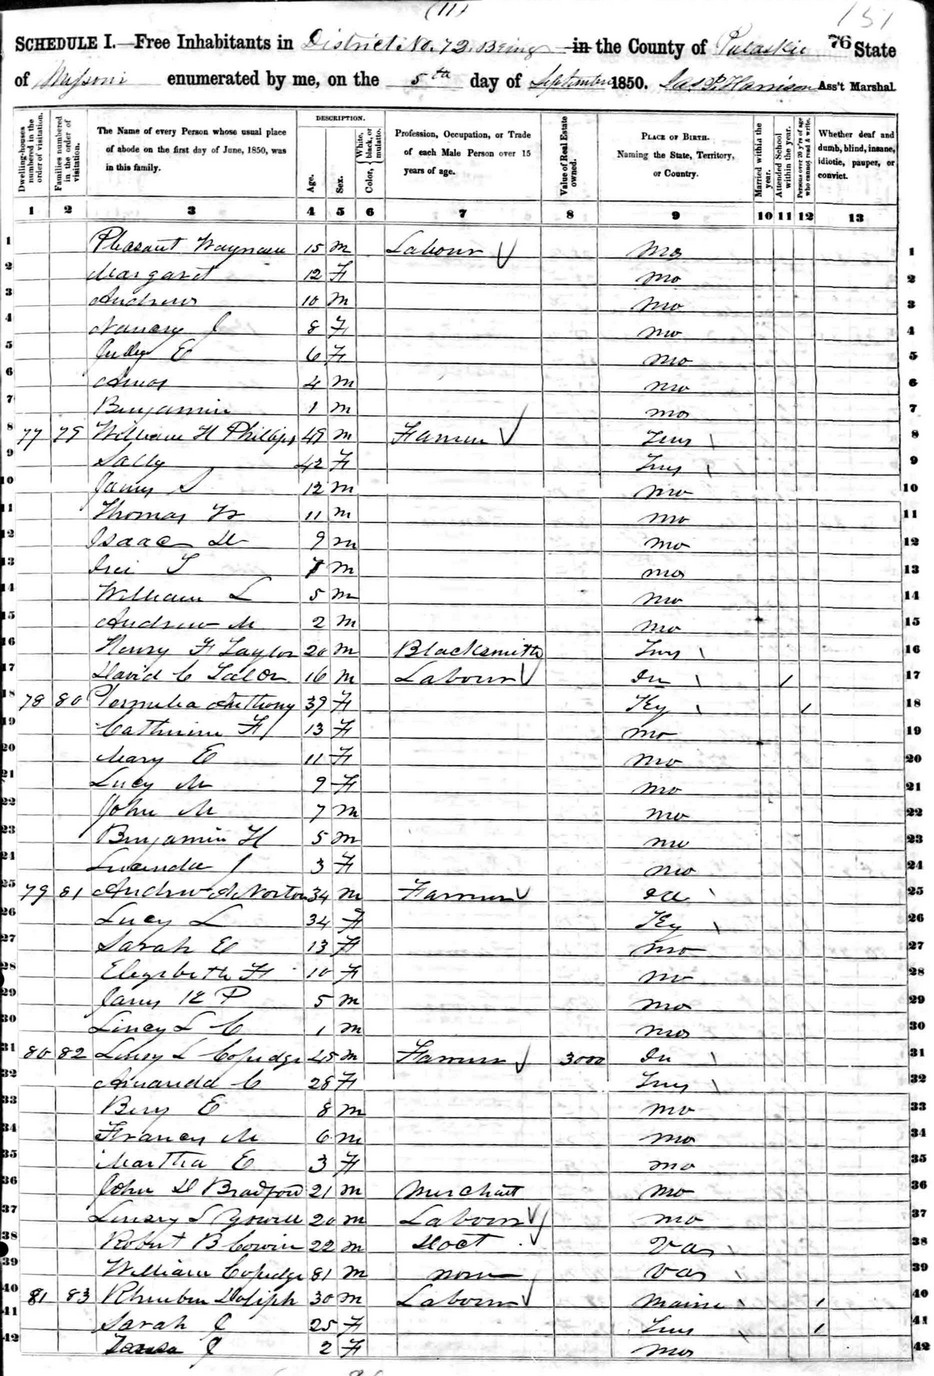 (11) 151
SCHEDULE I.—Free Inhabitants in District No. 72 Being in the County of Pulaskie 76 State
of Missouri enumerated by me, on the 5th day of September 1850. Jas P Harrison Ass't Marshal.
Dwelling-houses numbered in the order of visitation.
Families numbered in the order of visitation.
The Name of every Person whose usual place of abode on the first day of June, 1850, was in this family.
DESCRIPTION.
Age.
Sex.
Color, White, black, or mulatto.
Profession, Occupation, or Trade of each Male Person over 15 years of age.
Value of Real Estate owned.
PLACE OF BIRTH. Naming the State, Territory, or Country.
Married within the year.
Attended School within the year.
Persons over 20 y'rs of age who cannot read & write.
Whether deaf and dumb, blind, insane, idiotic, pauper, or convict.
1 2 3 4 5 6 7 8 9 10 11 12 13
1 Pleasant 15 m Labour Mo 1
2 Margaret 12 F Mo 2
3 Andrew 10 m Mo 3
4 Nancy J 8 F Mo 4
5 E 6 F Mo 5
6 Amos 4 m Mo 6
7 Benjamin 1 m Mo 7
8 77 79 William H Phillips 49 m Farmer Tenn 8
9 Sally 42 F Tenn 9
10 James S 12 m Mo 10
11 Thomas W 11 m Mo 11
12 Isaac D 9 m Mo 12
13 T 7 m Mo 13
14 William L 5 m Mo 14
15 Andrew M 2 m Mo 15
16 Henry F Taylor 20 m Blacksmith Tenn 16
17 David C 16 m Labour 17
18 78 80 Permelia Anthony 39 F Ky 18
19 Catherine F 13 F Mo 19
20 Mary E 11 F Mo 20
21 Lucy M 9 F Mo 21
22 John M 7 m Mo 22
23 Benjamin H 5 m Mo 23
24 Lucinda J 3 F Mo 24
25 79 81 Andrew A Norton 34 m Farmer 25
26 Lucy L 34 F Ky 26
27 Sarah E 13 F Mo 27
28 Elizabeth F 10 F Mo 28
29 James K P 5 m Mo 29
30 L C 1 m Mo 30
31 80 82 L Copedge 45 m Farmer 3000 31
32 Amanda C 28 F Tenn 32
33 Berry E 8 m Mo 33
34 Francis M 6 m Mo 34
35 Martha E 3 F Mo 35
36 John D Bradford 21 m Merchant Mo 36
37 20 m Labour Mo 37
38 Robert B 22 m Doct Va 38
39 William Copedge 81 m none Va 39
40 81 83 Rheuben 30 m Labour Maine 40
41 Sarah J 25 F Tenn 41
42 J 2 F Mo 42